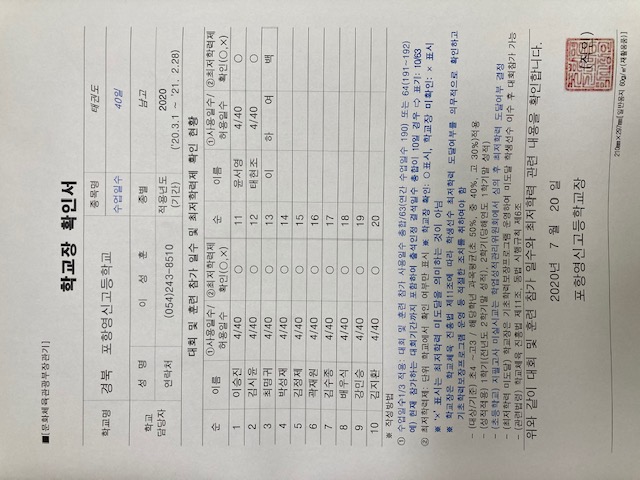 ■[문화체육관광부장관기]
학교장 확인서
학교명 경북 포항영신고등학교 종목명 태권도
수업일수 40일
학교 담당자 성 명 이 성 훈 종별 남고
연락처 (054)243-8510 적용년도 (기간) 2020 ('20.3.1 ~ '21. 2.28)
대회 및 훈련 참가 일수 및 최저학력제 확인 현황
순 이름 ①사용일수/허용일수 ②최저학력제 확인(○,X) 순 이름 ①사용일수/허용일수 ②최저학력제 확인(○,X)
1 이승진 4/40 ○ 11 윤서영 4/40 ○
2 김시윤 4/40 ○ 12 태현조 4/40 ○
3 최명귀 4/40 ○ 13 이 하 여 백
4 박성재 4/40 ○ 14
5 김정제 4/40 ○ 15
6 곽재원 4/40 ○ 16
7 김수종 4/40 ○ 17
8 배우식 4/40 ○ 18
9 강민승 4/40 ○ 19
10 김지환 4/40 ○ 20
※ 작성방법
① 수업일수1/3 적용: 대회 및 훈련 참가 사용일수 총합/63(연간 수업일수 190) 또는 64(191~192)
예) 현재 참가하는 대회기간까지 포함하여 출석인정 결석일수 총합이 10일 경우 ⇨ 표기: 10/63
② 최저학력제: 단위 학교에서 확인 여부만 표시 ※ 학교장 확인: ○ 표시, 학교장 미확인: × 표시
※ '×' 표시는 최저학력 미도달을 의미하는 것이 아님
※ 학교장은 학교체육 진흥법 제11조에 따라 학생선수 최저학력 도달여부를 의무적으로 확인하고
기초학력보장프로그램 운영 등 적절한 조치를 취하여야 함
- (대상/기준) 초4 ~고3 / 해당학년 과목평균(초 50%, 중 40%, 고 30%)적용
- (성적적용) 1학기(전년도 2학기말 성적), 2학기(당해연도 1학기말 성적)
- (초등학교) 지필고사 미실시교는 학업성적관리위원회에서 심의 후 최저학력 도달여부 결정
- (최저학력 미도달) 학교장은 기초학력보장프로그램 운영하여 미도달 학생선수 이수 후 대회참가 가능
- (관련법령) 학교체육 진흥법 제11조, 동법 시행규칙 제6조
위와 같이 대회 및 훈련 참가 일수와 최저학력 관련 내용을 확인합니다.
2020년 7 월 20 일
포항영신고등학교장 (직인)
210㎜×297㎜[일반용지 60g/㎡(재활용품)]